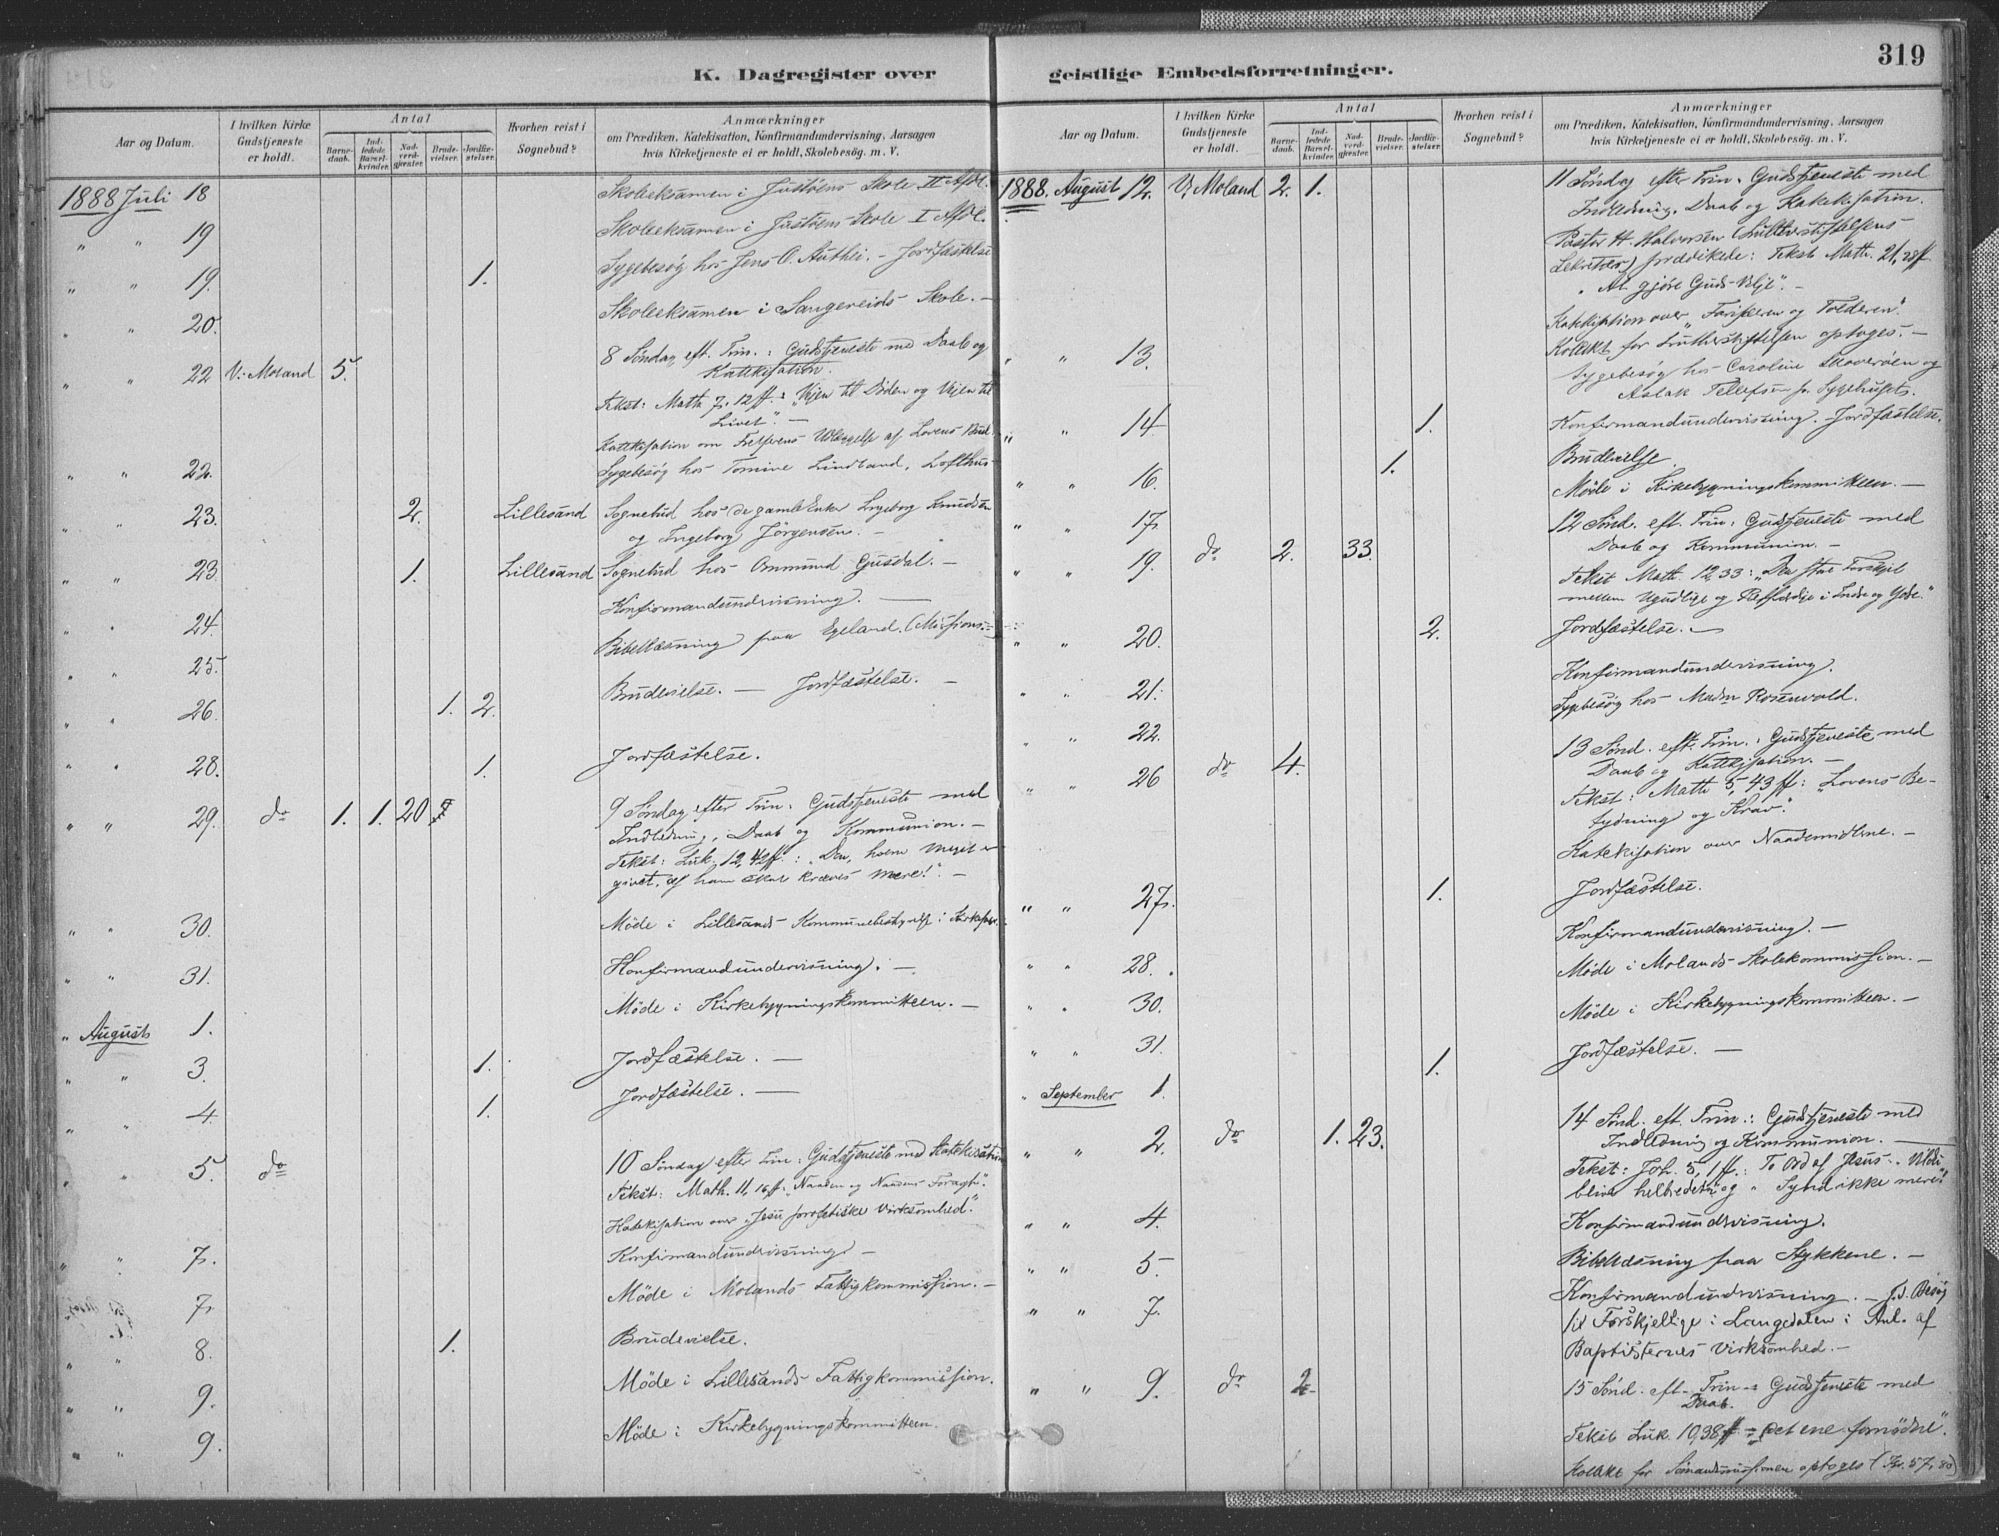 319
K. Dagregister over
Aar og Datum.
I hvilken Kirke Gudstjeneste er holdt.
Antal
Barnedaab.
Indledede Barselkvinder.
Nadverdgjester.
Brudevielser.
Jordfæstelser.
Hvorhen reist i Sognebud?
Anmærkninger
om Prædiken, Katekisation, Konfirmandundervisning, Aarsagen
hvis Kirketjeneste ei er holdt, Skolebesøg. m. V.
1888 Juli 18 Skoleeksamen i Justøens Skole II Afdl.
" " 19 Skoleeksamen i Justøens Skole I Afdl.
" " 19. 1. Sygebesøg hos Jens O. – Jordfæstelse
" " 20. Skoleeksamen i Sangereids Skole. –
" " 22 V. Moland 5. 8 Søndag eft. Trin.: Gudstjeneste med Daab og
Katekisation.
Tekst: Matth 7, 12 ff.: "Vejen til Døden og Vejen til
Livet". –
Katekisation om Frelserens Udlæggelse af Lovens Bud.
" " 22. Sygebesøg hos Tomine Lindland, Lofthus
" " 23. 2. Lillesand Sognebud hos de gamle Enker Ingeborg Knudsen
og Ingeborg Jørgensen. –
" " 23. 1. Lillesand Sognebud hos Ommund Gusdal. –
" " 24. Konfirmandundervisning. –
" " 25. Bibellæsning paa Egeland. (Missions
" " 26. 1. 2. Brudevielse. – Jordfæstelse. –
" " 28. 1. Jordfæstelse.
" " 29. do 1. 1. 20 9 Søndag efter Trin: Gudstjeneste med
Indledning, Daab og Kommunion. –
Tekst: Luk. 12, 42 ff.: "Den, hvem meget er
givet, af ham skal kræves mere!". –
" " 30. Møde i Lillesands Kommunebestyrelse i
" " 31. Konfirmandundervisning. –
" August 1. Møde i Kirkebygningskommitteen. –
" " 3. 1. Jordfæstelse. –
" " 4. 1. Jordfæstelse. –
" " 5. do 10 Søndag efter Trin: Gudstjeneste med Katekisation
Tekst: Math. 11, 16 ff: "Naaden og Naadens Foragt".
Katekisation over "Jesu profetiske Virksomhed".
" " 7. Konfirmandundervisning –
" " 7. Møde i Molands Fattigkommission. –
" " 8. 1. Brudevielse.
" " 9. Møde i Lillesands Fattigkommission.
" " 9. Møde i Kirkebygningskommitteen.
geistlige Embedsforretninger.
Aar og Datum.
I hvilken Kirke Gudstjeneste er holdt.
Antal
Barnedaab.
Indledede Barselkvinder.
Nadverdgjester.
Brudevielser.
Jordfæstelser.
Hvorhen reist i Sognebud?
Anmærkninger
om Prædiken, Katekisation, Konfirmandundervisning, Aarsagen
hvis Kirketjeneste ei er holdt, Skolebesøg. m. V.
1888. August 12. V. Moland 2. 1. 11 Søndag efter Trin. Gudstjeneste med
Indledning, Daab og Katekisation.
Pastor H. Halvorsen (Lutherstiftelsens
Sekretær) prædikede: Tekst Matth. 21, 28 ff.
"At gjøre Guds Vilje". –
Katekisation over "Fariseren og Tolderen".
Kollekt for Lutherstiftelsen optoges. –
" " 13. Sygebesøg hos Caroline og
Aslak Tellefsen Sygehuset.
" " 14. 1. Konfirmandundervisning. Jordfæstelse.
" " 16. 1. Brudevielse.
" " 17. Møde i Kirkebygningskommitteen. –
" " 19. do 2. 33. 12 Sønd. eft. Trin: Gudstjeneste med
Daab og Kommunion. –
Tekst Matth. 12, 33: "Den store Forskjel
mellem Ugudlige og Retfærdige i Indre og Ydre."
" " 20. 2. Jordfæstelse. –
" " 21. Konfirmandundervisning.
" " 22. Sygebesøg hos Madm Rosenvold.
" " 26 do 4. 13 Sønd. eft. Trin.: Gudstjeneste med
Daab og Katekisation. –
Tekst: Matth 5, 43 ff: "Lovens Be-
tydning og Krav".
Katekisation over Naademidlerne. –
" " 27. 1. Jordfæstelse.
" " 28. Konfirmandundervisning. –
" " 30. Møde i Molands Skolekommission. –
" " 31. Møde i Kirkebygningskommitteen. –
" September 1. 1. Jordfæstelse. –
" " 2. do 1. 23. 14 Sønd. eft. Trin.: Gudstjeneste med
Indledning og Kommunion. –
Tekst: Joh. 5, 1 ff.: To Ord af Jesus "Vil du
blive helbredet?" og "Synd ikke mere!"
" " 4. Konfirmandundervisning.
" " 5. Bibellæsning paa Stykkene. –
" " 7. Konfirmandundervisning. – Besøg
til Forskjellige i Langedalen i Anl. af
Baptisternes Virksomhed. –
" " 9. do 2 15 Sønd. eft. Trin – Gudstjeneste med
Daab.
Tekst Luk. 10, 38 ff – "Det ene fornødne".
Kollekt for Sømandsmissionen optoges (Kr. 57, 80)